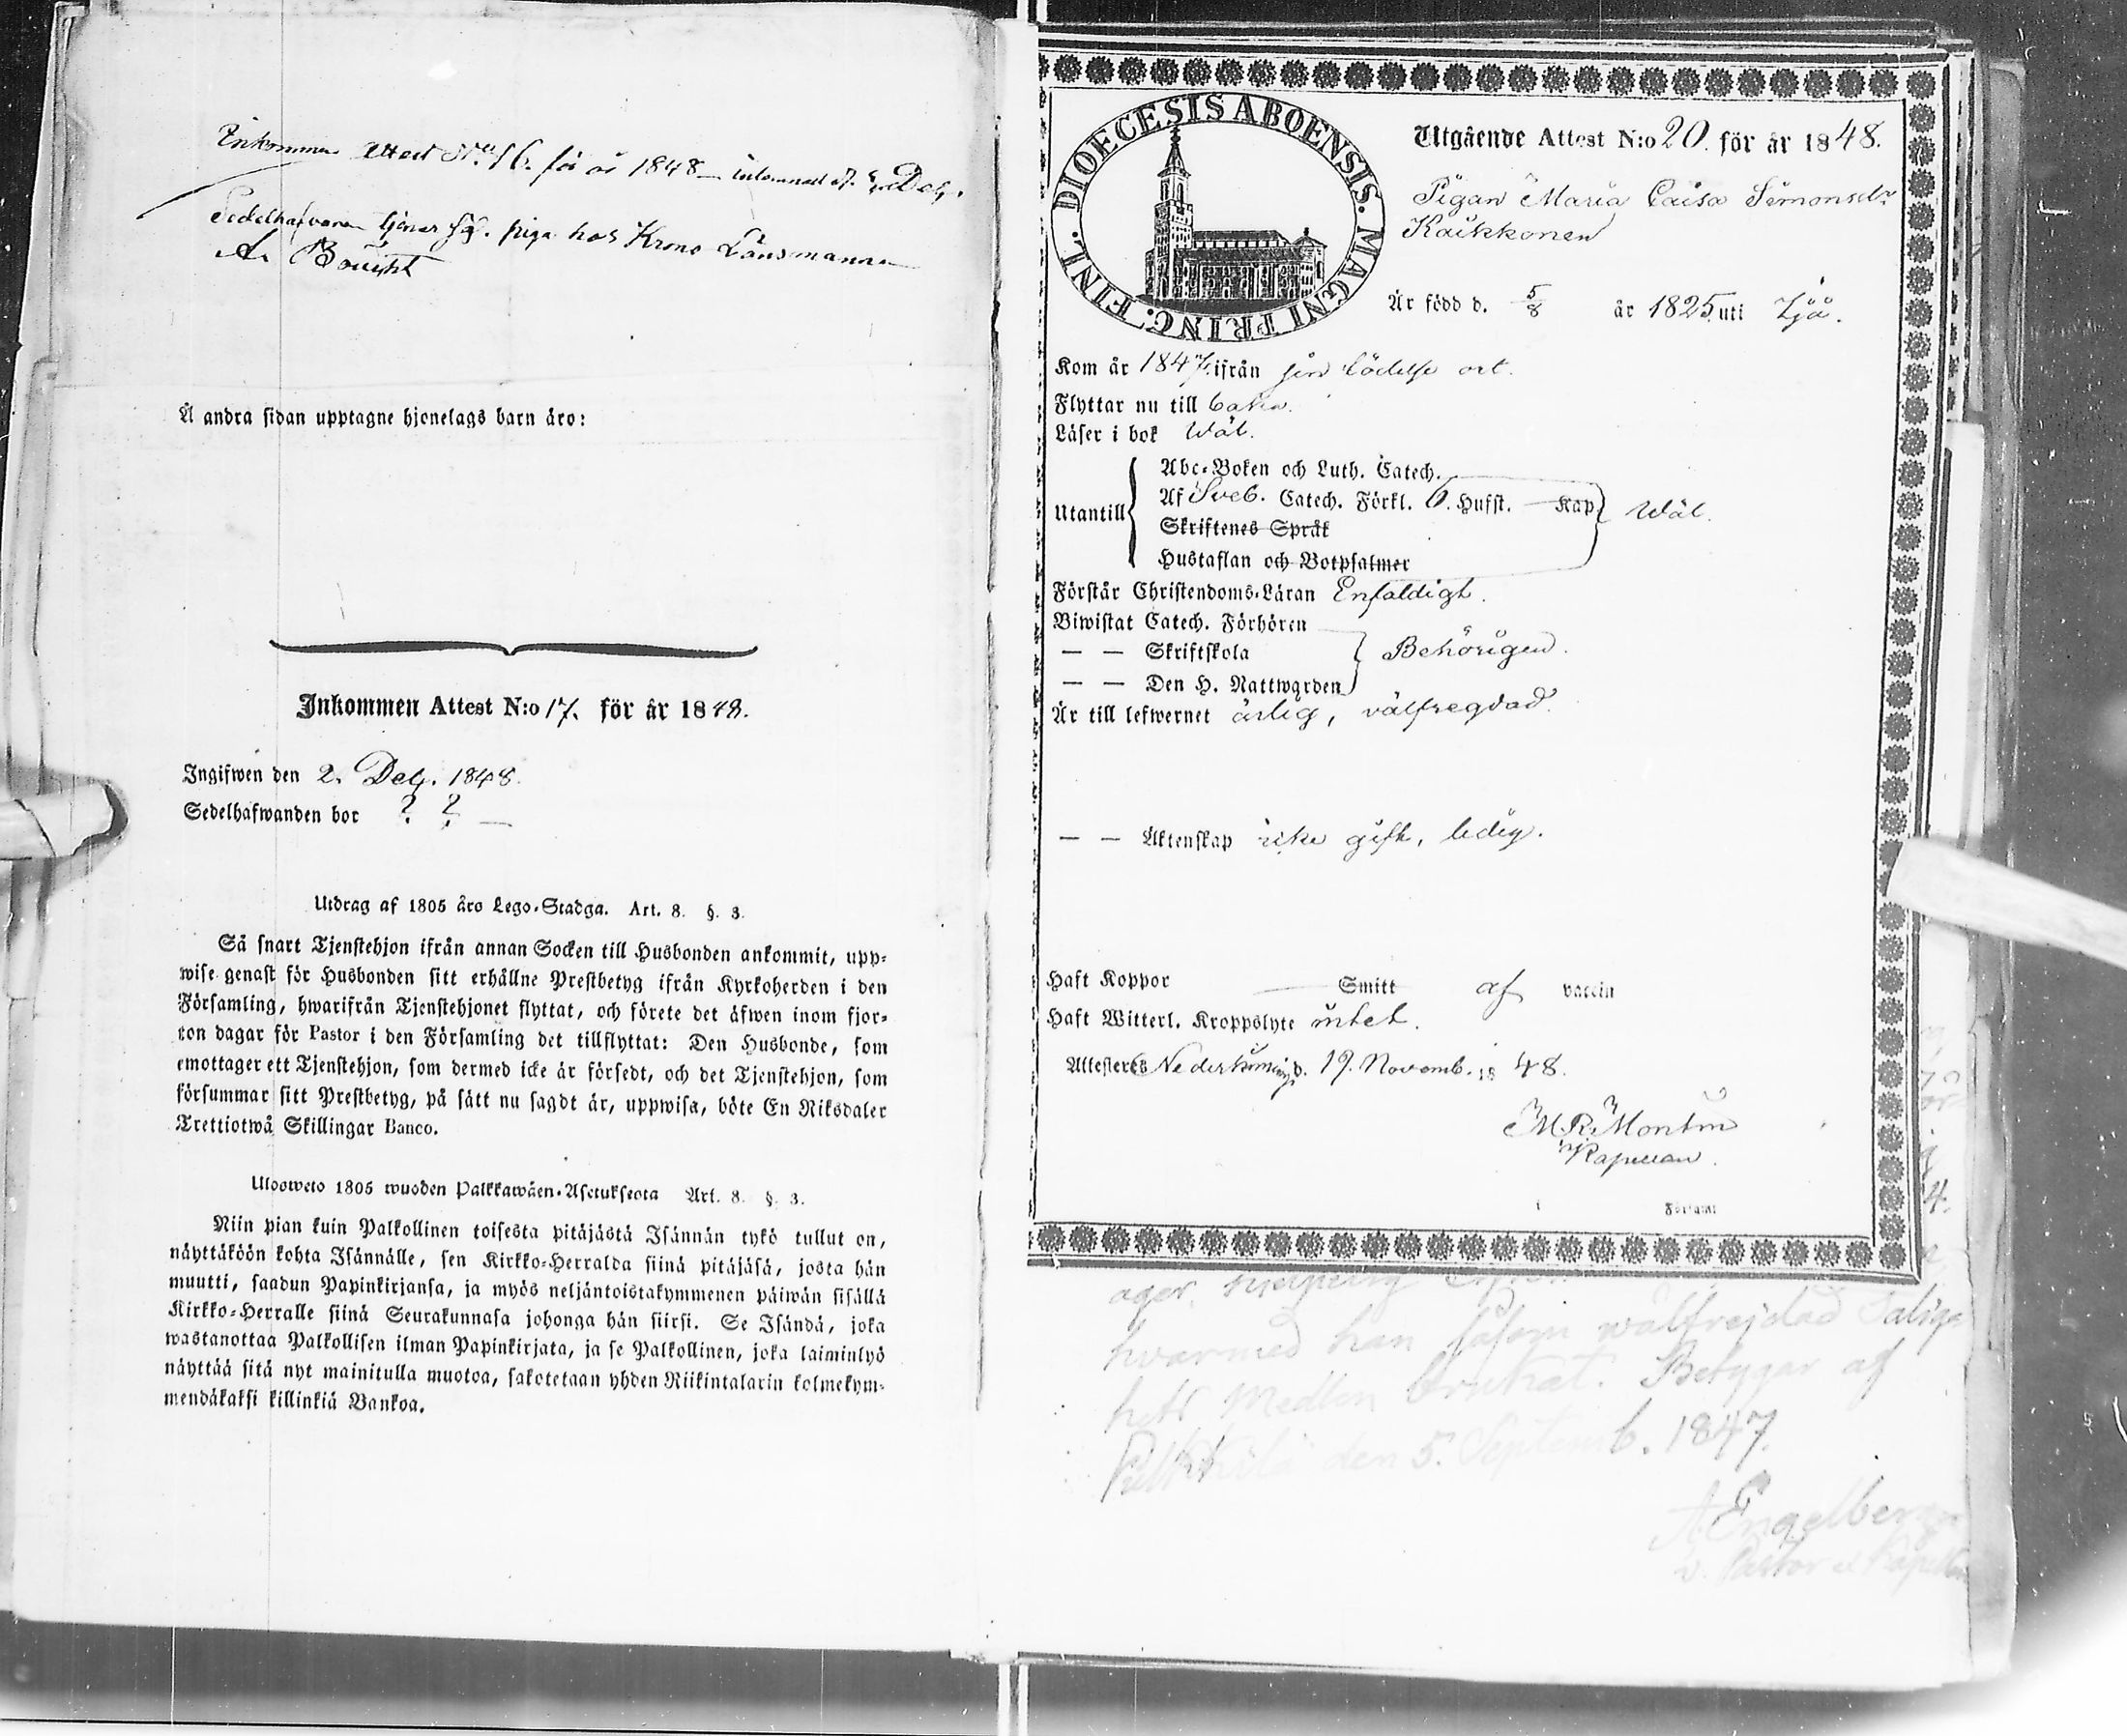 Inkommen Attest N:o 16. för år 1848 — inlemnad d. 2. Decbr.
Sedelhafvaren tjenar ss. piga hos Krono Länsmannen
A.
Å andra sidan upptagne hjonelags barn äro:
Inkommen Attest N:o 17. för år 1848.
Ingifwen den 2. Decbr. 1848.
Sedelhafwanden bor ? ? —
Utdrag af 1805 års Lego-Stadga. Art. 8. §. 3.
Så snart Tjenstehjon ifrån annan Socken till Husbonden ankommit, upp-
wise genast för Husbonden sitt erhållne Prestbetyg ifrån Kyrkoherden i den
Församling, hwarifrån Tjenstehjonet flyttat, och förete det äfwen inom fjor-
ton dagar för Pastor i den Församling det tillflyttat: Den Husbonde, som
emottager ett Tjenstehjon, som dermed icke är försedt, och det Tjenstehjon, som
försummar sitt Prestbetyg, på sätt nu sagdt är, uppwisa, böte En Riksdaler
Trettiotwå Skillingar Banco.
Ulosweto 1805 wuoden Palkkawäen-Asetuksesta Art. 8. §. 3.
Niin pian kuin Palkollinen toisesta pitäjästä Isännän tykö tullut on,
näyttäköön kohta Isännälle, sen Kirkko-Herralda siinä pitäjäsä, josta hän
muutti, saadun Papinkirjansa, ja myös neljäntoistakymmenen päiwän sisällä
Kirkko-Herralle siinä Seurakunnasa johonga hän siirsi. Se Isändä, joka
wastanottaa Palkollisen ilman Papinkirjata, ja se Palkollinen, joka laiminlyö
näyttää sitä nyt mainitulla muotoa, sakotetaan yhden Riikintalarin kolmekym-
mendäkaksi killinkiä Bankoa.
DIOECESIS ABOENSIS. MAGNI PRINC. FINL.
Utgående Attest N:o 20. för år 1848.
Pigan Maria Caisa Simonsdr
Kaikkonen
Är född d. 5/8 år 1825 uti Ijå.
Kom år 1847 ifrån sin födelse ort.
Flyttar nu till baka.
Läser i bok Wäl.
Utantill
Abc-Boken och Luth. Catech.
Af Sveb. Catech. Förkl. 6. Hufst. — Kap
Skriftenes Språk
Hustaflan och Botpsalmer
Wäl.
Förstår Christendoms-Läran Enfaldigt.
Biwistat Catech. Förhören
— — Skriftskola
— — Den H. Nattwarden
Behörigen.
Är till lefwernet ärlig, välfregdad.
— — Äktenskap icke gift, ledig.
Haft Koppor — Smitt af vaccin
Haft Witterl. Kroppslyte intet.
Attesteres Nederkimingi d. 19. Novemb. 18 48.
M. R. Montin
Kapellan.
Församl
hvarmed han såsom wälfrejdad Salig-
hets Medlen brukat. Betygar af
Pulkkila den 5. Septemb. 1847.
A Engelberg
v. Pastor Kapellan